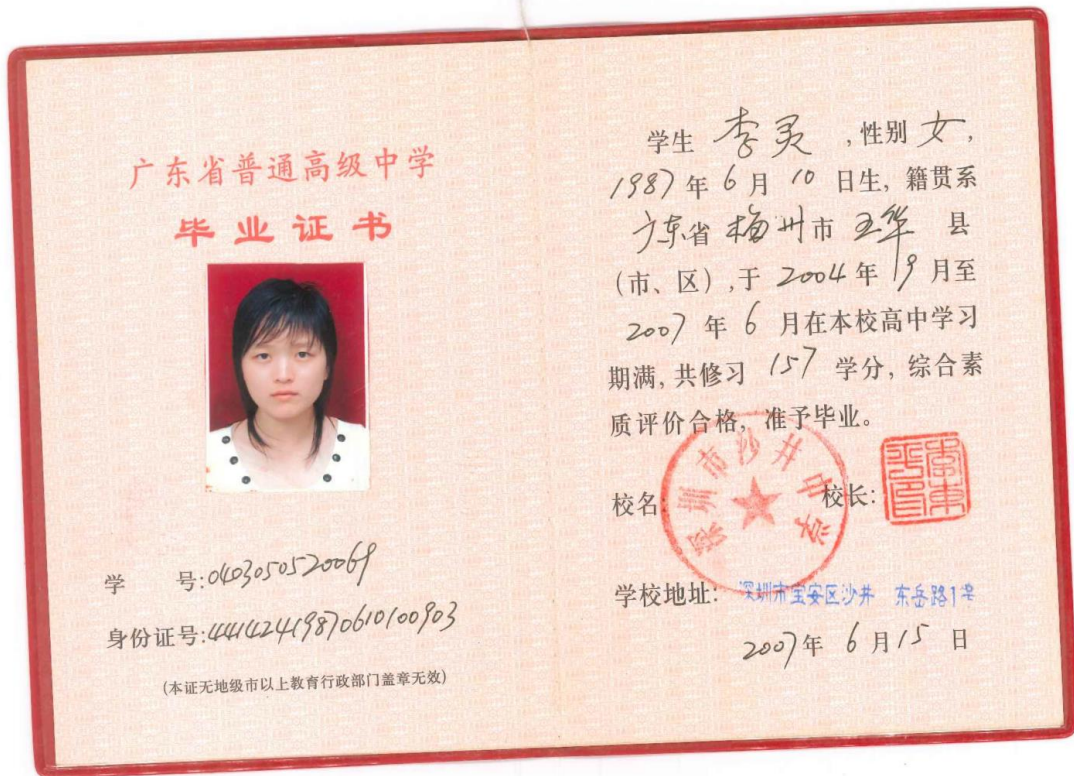 广东省普通高级中学
毕业证书
学 号:0403050520069
身份证号:441424198706101009​03
(本证无地级市以上教育行政部门盖章无效)
学生 李灵 ,性别 女,
1987年 6 月 10 日生, 籍贯系
广东省 梅州市 五华 县
(市、区) ,于 2004 年 9 月至
2007 年 6 月在本校高中学习
期满, 共修习 157 学分, 综合素
质评价合格, 准予毕业。
深圳市沙井中学
校名: 校长:
学校地址: 深圳市宝安区沙井 东岳路1号
2007年 6 月 15 日